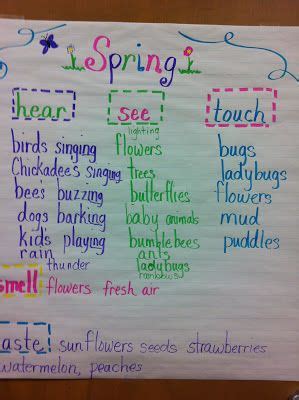 Spring
hear
see
touch
birds singing
Chickadees singing
bees buzzing
dogs barking
kids playing
rain
thunder
lighting
flowers
trees
butterflies
baby animals
bumblebees
ants
ladybugs
rainbows
bugs
ladybugs
flowers
mud
puddles
smell flowers fresh air
aste sunflowers seeds strawberries
watermelon, peaches